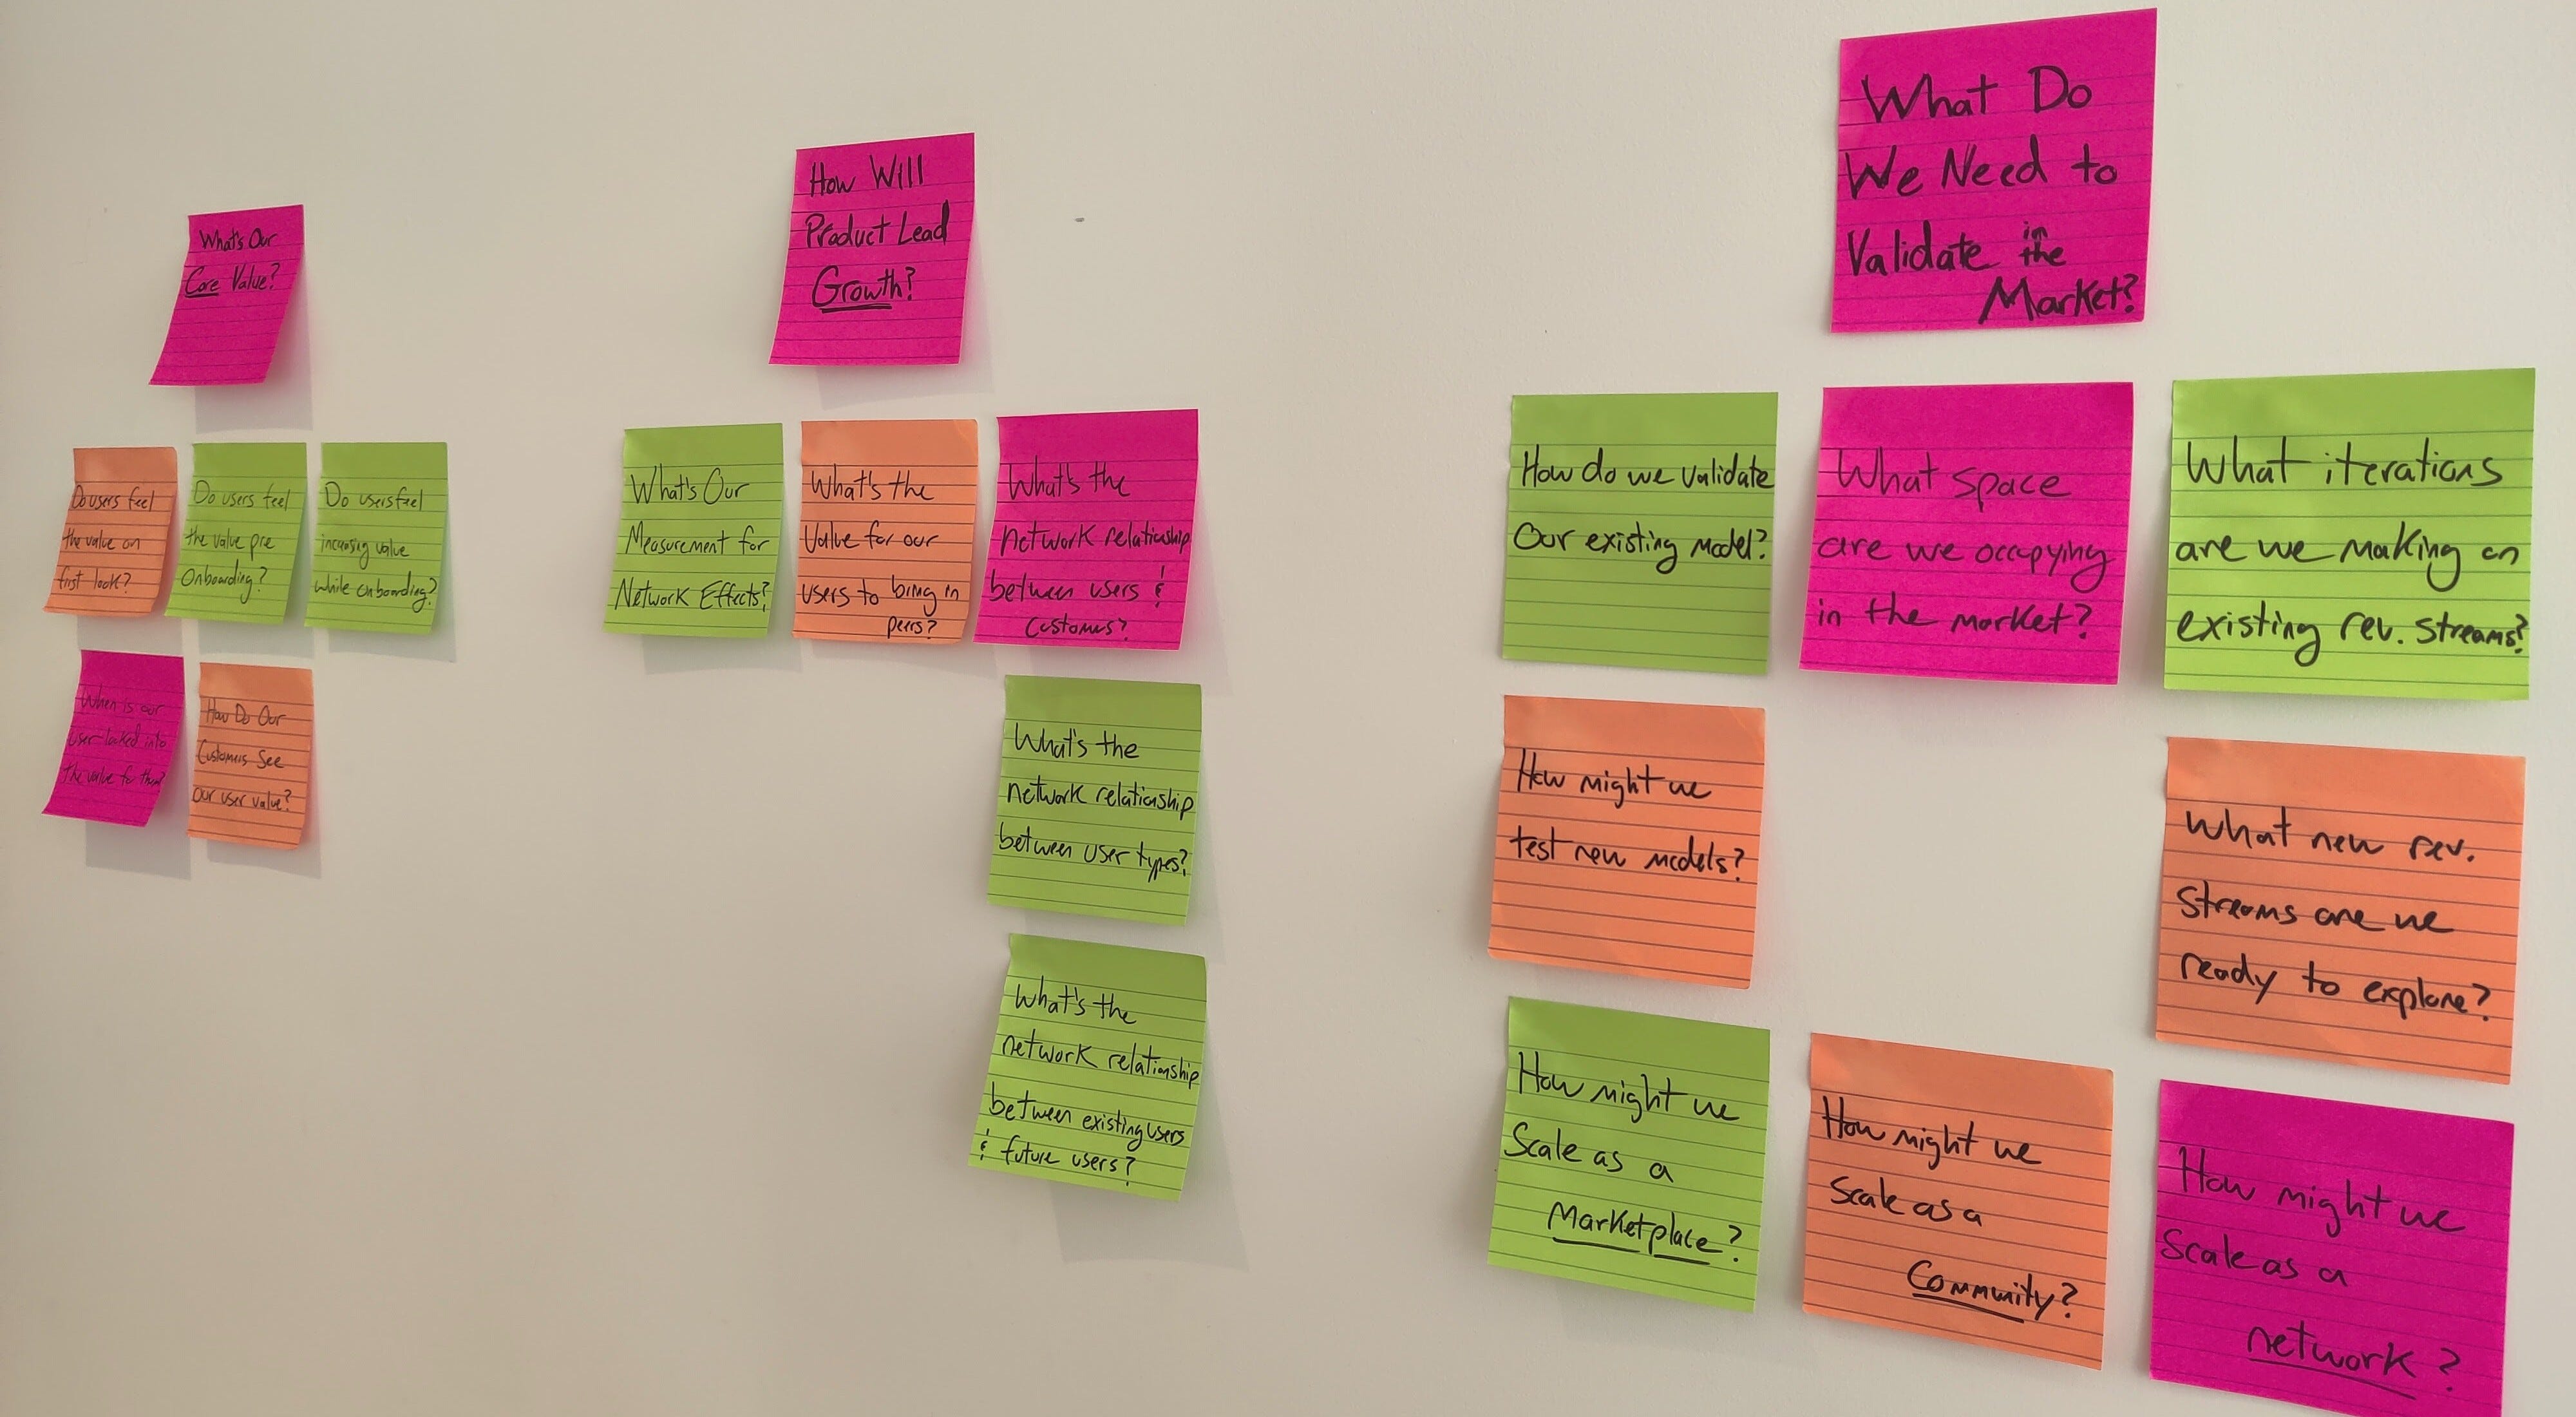 What's Our
Core Value?
Do users feel
the value on
first look?
Do users feel
the value pre
Onboarding?
Do users feel
increasing value
while onboarding?
When is our
user locked into
the value for them?
How Do Our
Customers See
our user value?
How Will
Product Lead
Growth?
What's Our
Measurement for
Network Effects?
What's the
Value for our
users to bring in
peers?
What's the
network relationship
between users &
customers?
What's the
network relationship
between user types?
What's the
network relationship
between existing users
& future users?
What Do
We Need to
Validate in the
Market?
How do we validate
Our existing model?
What space
are we occupying
in the market?
What iterations
are we making on
existing rev. streams?
How might we
test new models?
What new rev.
streams are we
ready to explore?
How might we
Scale as a
Marketplace?
How might we
scale as a
Community?
How might we
scale as a
network?